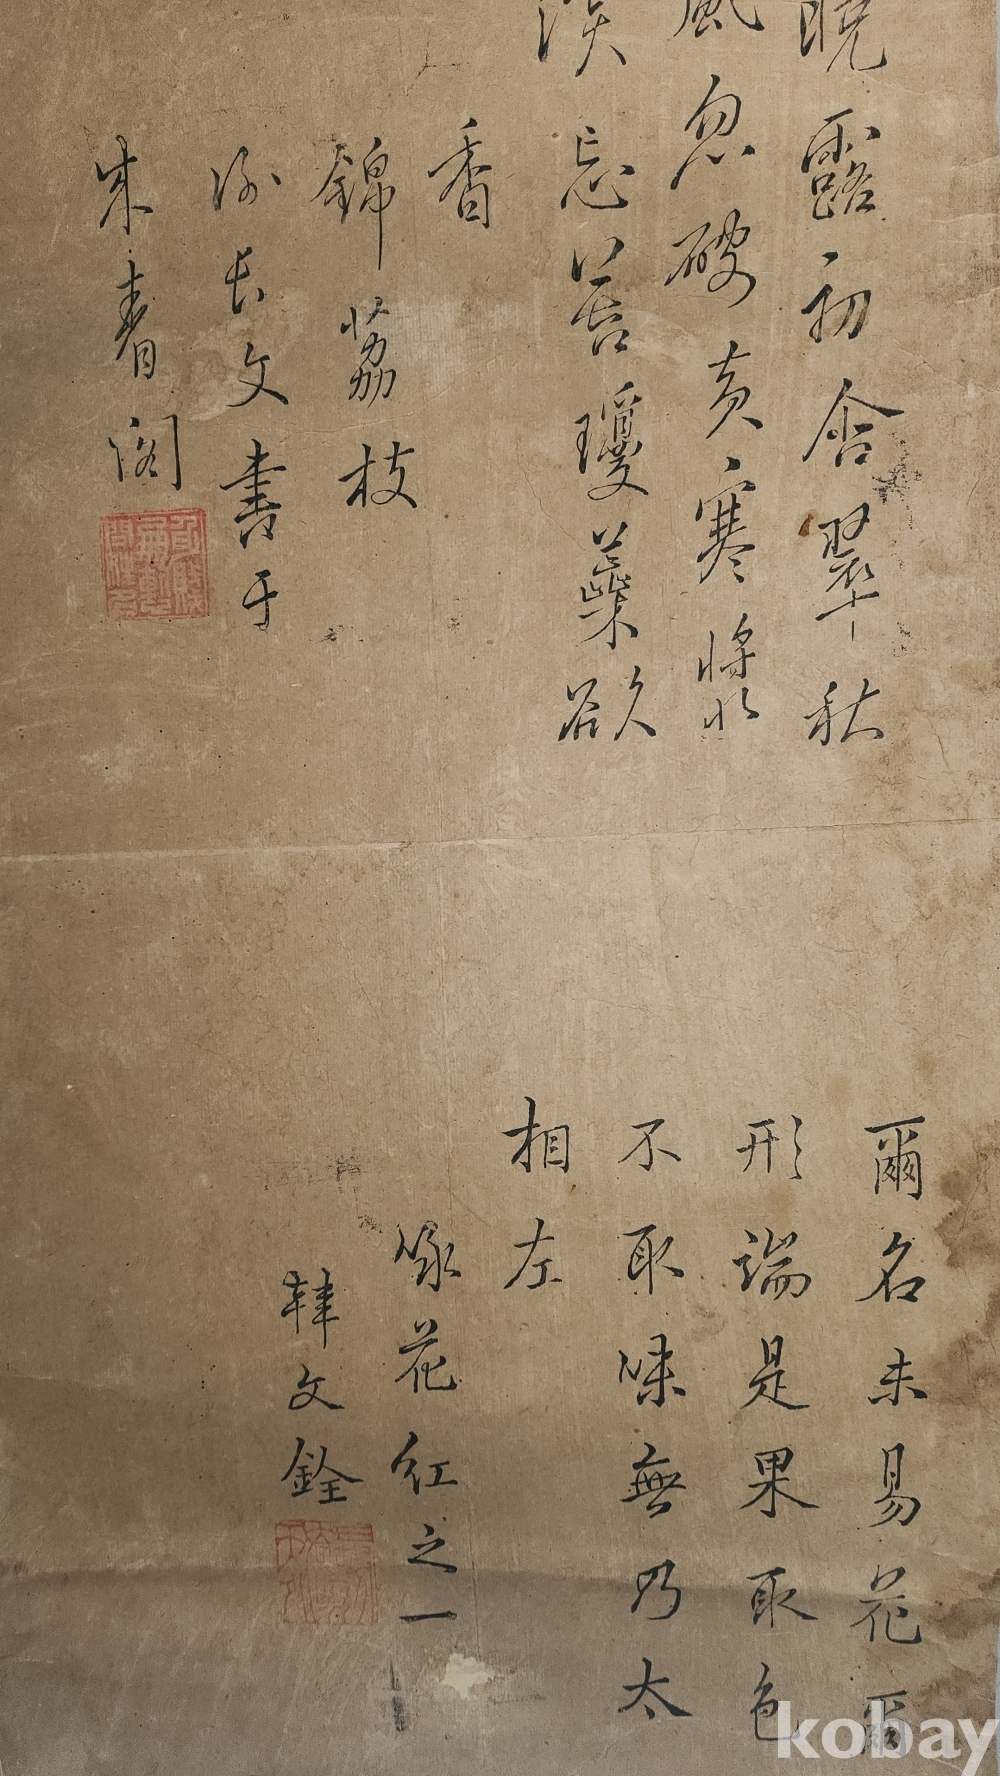 晚露初含翠秋
風忽破黃寒漿
淡忘苦瓊蘂欲
香
錦荔枝
徐長文書于
朱青閣
爾名未易花爾
形端是果取色
不取味無乃太
相左
詠花紅之一
韓文銓
kobay